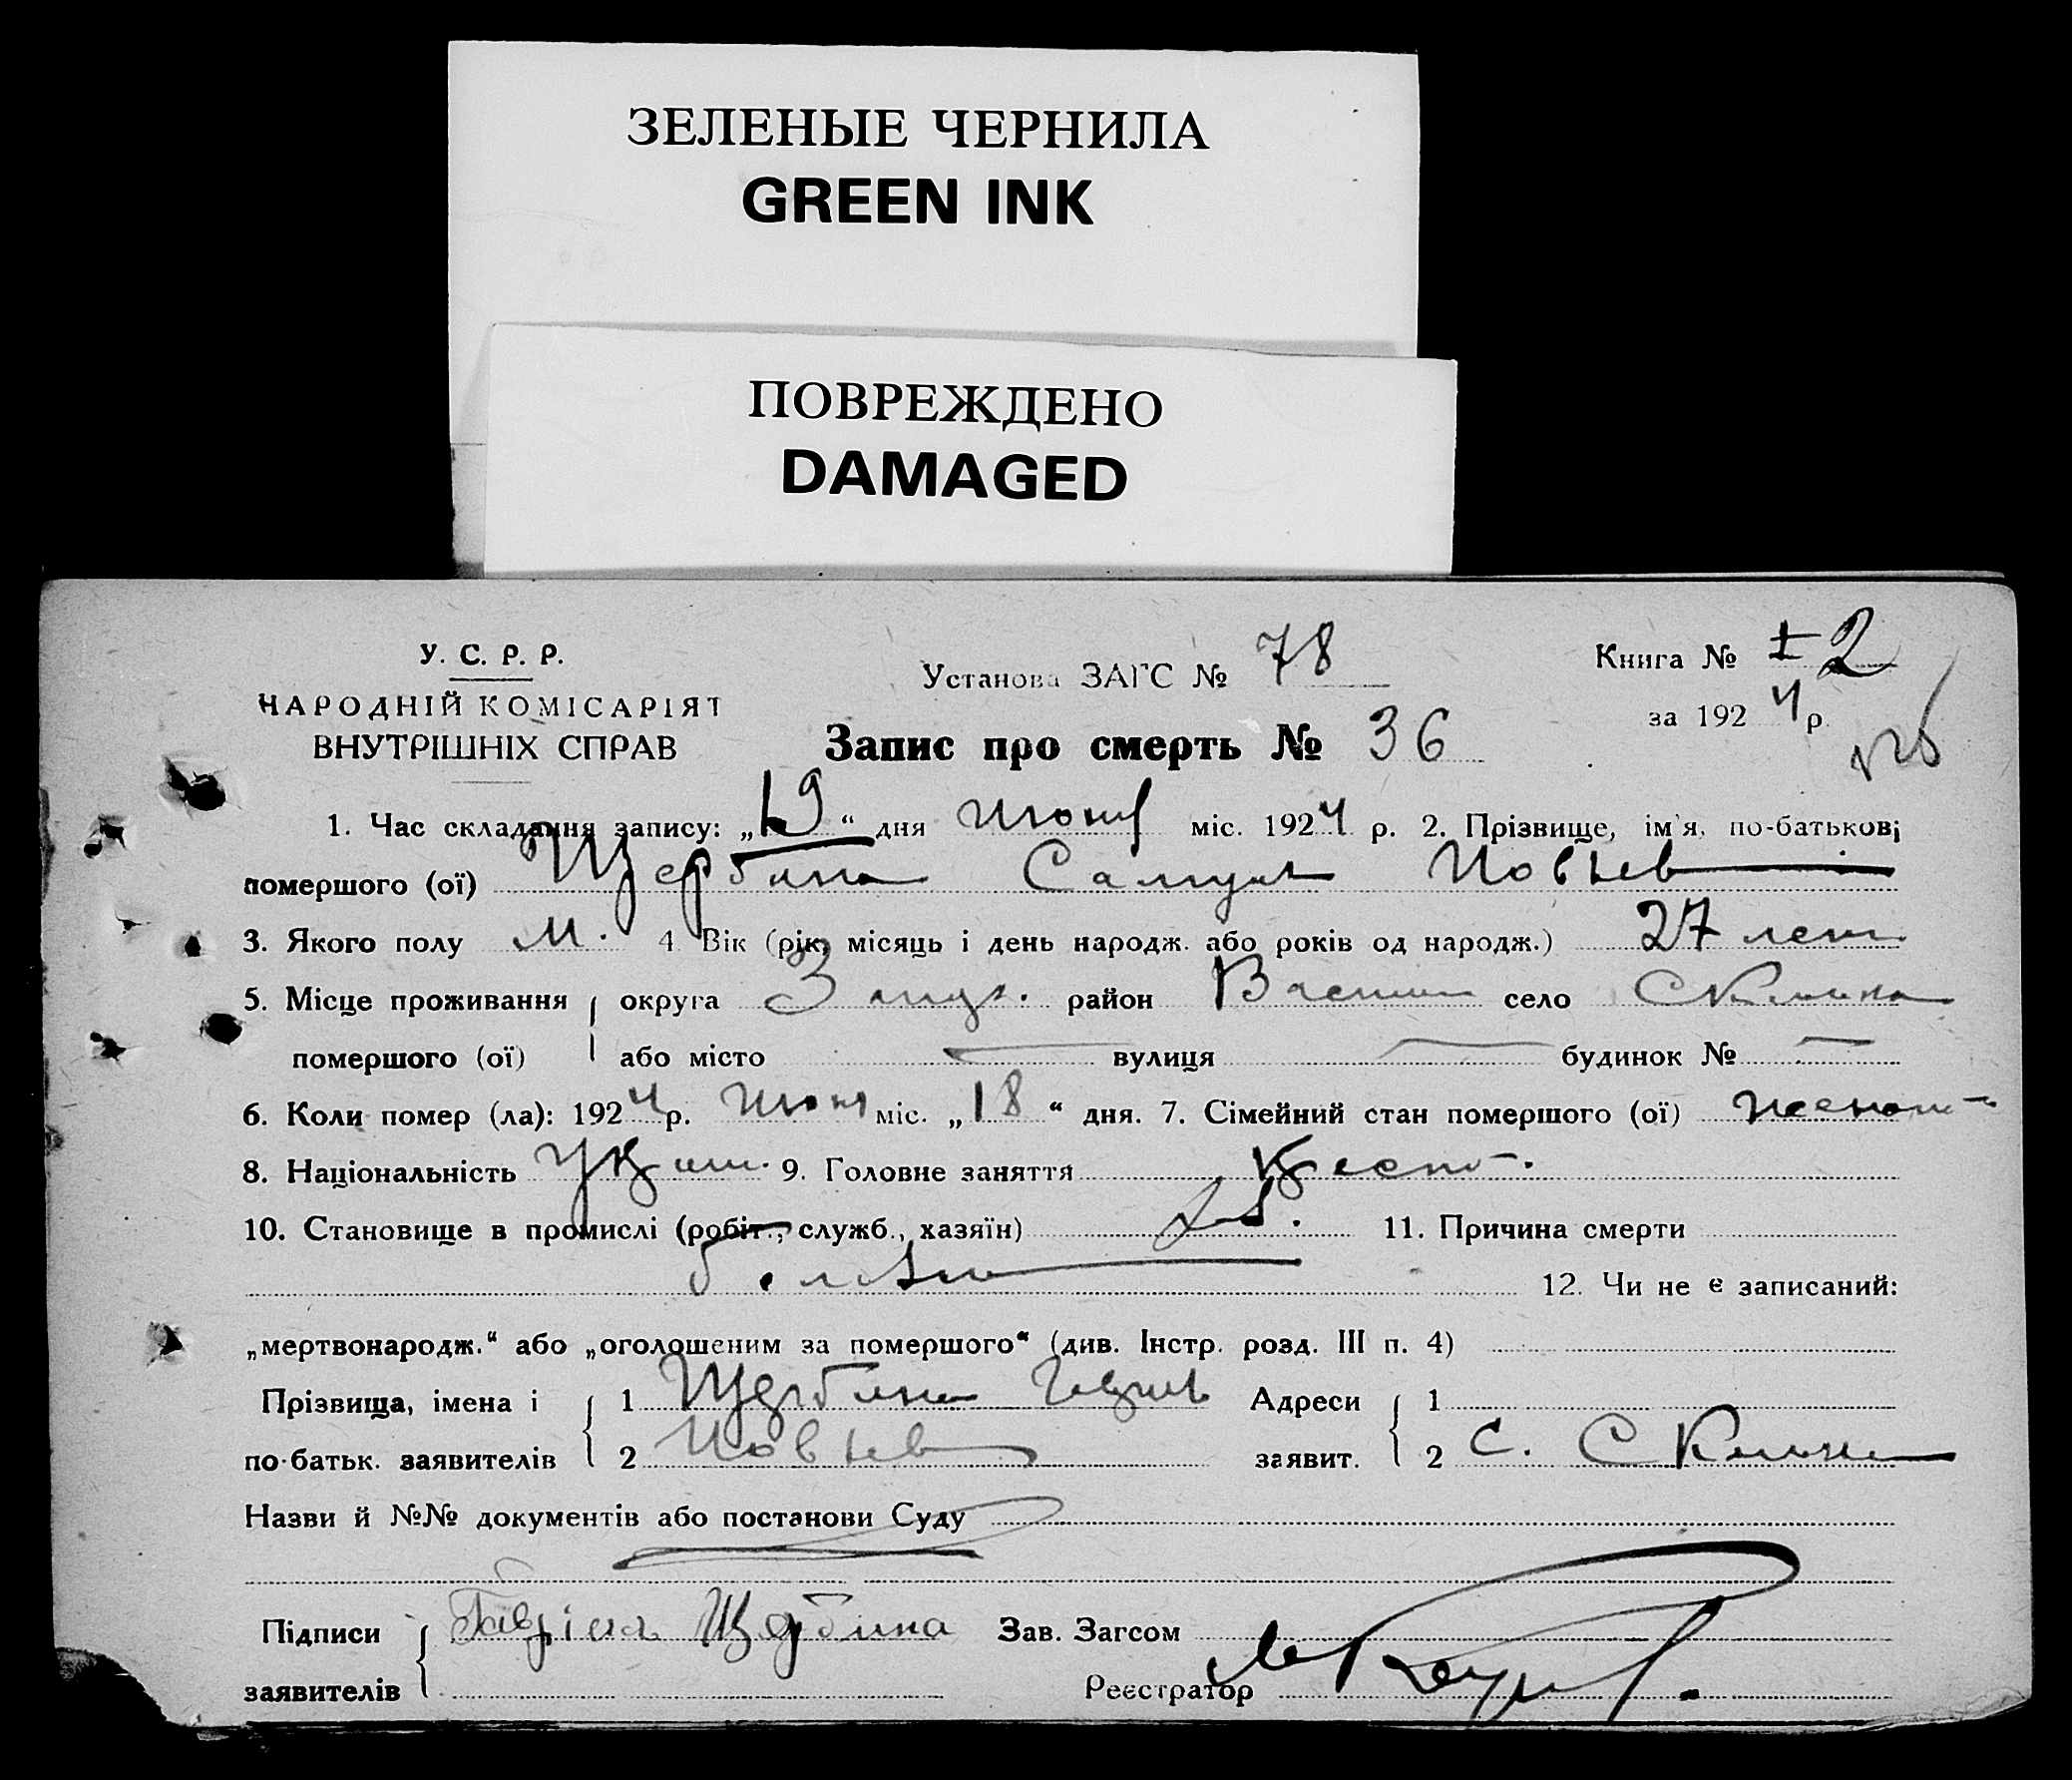 ЗЕЛЕНЫЕ ЧЕРНИЛА
GREEN INK
ПОВРЕЖДЕНО
DAMAGED
У. С. Р. Р.
НАРОДНІЙ КОМІСАРІЯТ
ВНУТРІШНІХ СПРАВ
Установа ЗАГС № 78
Книга № 2
за 1924 р.
Запис про смерть № 36
1. Час складання запису: „19“ дня Июня міс. 1924 р. 2. Прізвище, ім'я, по-батькові
помершого (ої) Щербина Самуил Иовлев
3. Якого полу м. 4 Вік (рік, місяць і день народж. або років од народж.) 27 лет
5. Місце проживання округа район село
помершого (ої) або місто вулиця будинок №
6. Коли помер (ла): 1924 р. Июня міс. „18“ дня. 7. Сімейний стан помершого (ої) женат
8. Національність 9. Головне заняття
10. Становище в промислі (робіт., служб., хазяїн) 11. Причина смерти
12. Чи не є записаний:
„мертвонародж.“ або „оголошеним за помершого“ (див. Інстр. розд. III п. 4)
Прізвища, імена і 1 Щербина Адреси 1
по-батьк. заявителів 2 Иовлев заявит. 2 с.
Назви й №№ документів або постанови Суду
Підписи Гавріил Щербина Зав. Загсом
заявителів Реєстратор